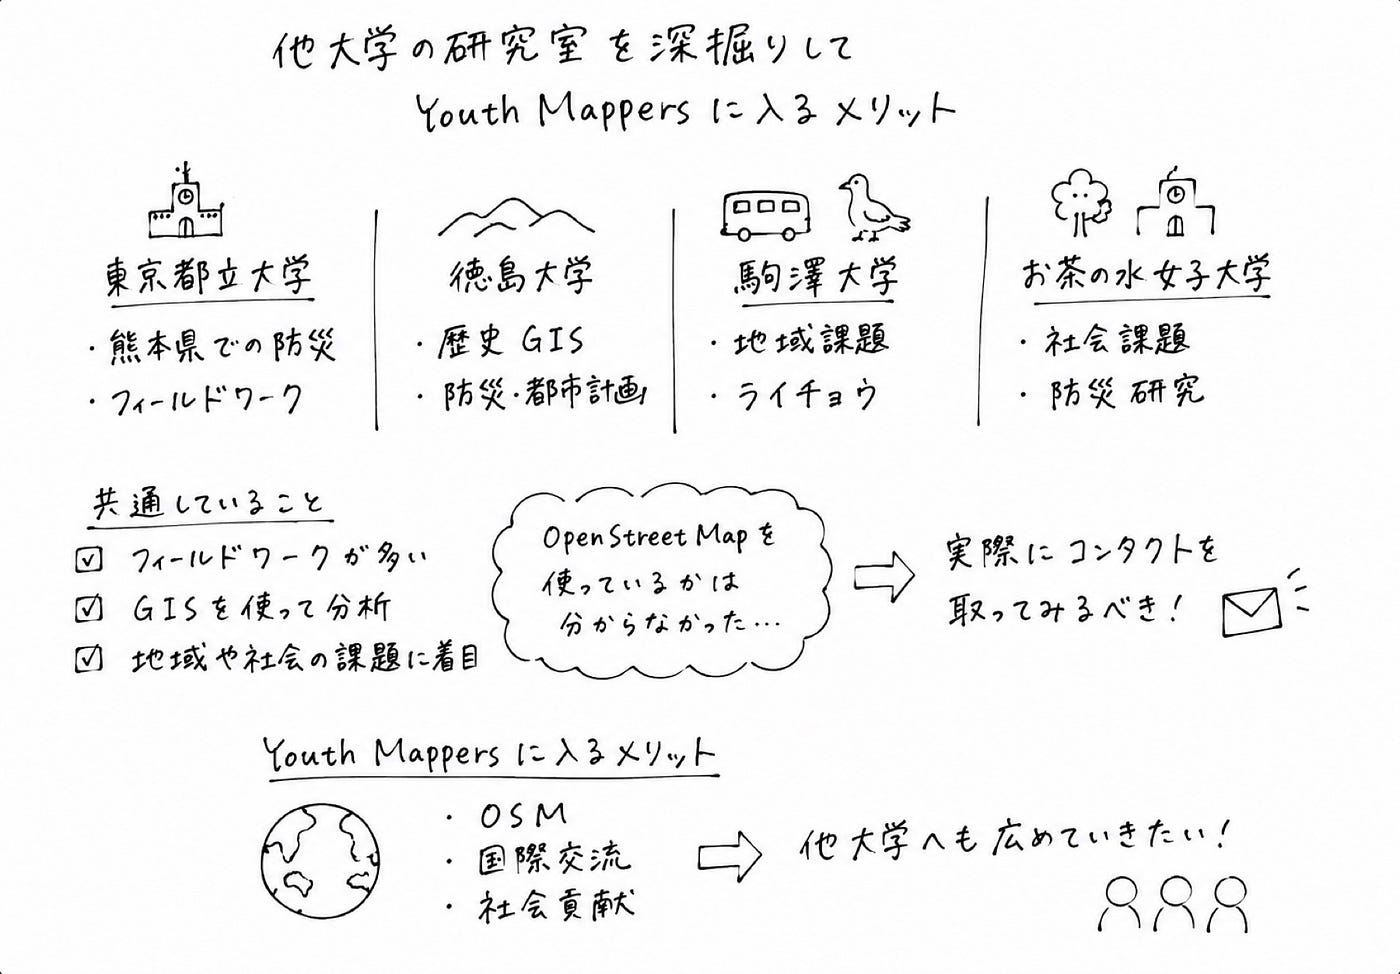 他大学の研究室を深掘りして
Youth Mappersに入るメリット
東京都立大学
・熊本県での防災
・フィールドワーク
徳島大学
・歴史GIS
・防災・都市計画
駒澤大学
・地域課題
・ライチョウ
お茶の水女子大学
・社会課題
・防災研究
共通していること
☑ フィールドワークが多い
☑ GISを使って分析
☑ 地域や社会の課題に着目
OpenStreetMapを
使っているかは
分からなかった…
実際にコンタクトを
取ってみるべき！
Youth Mappersに入るメリット
・OSM
・国際交流
・社会貢献
他大学へも広めていきたい！